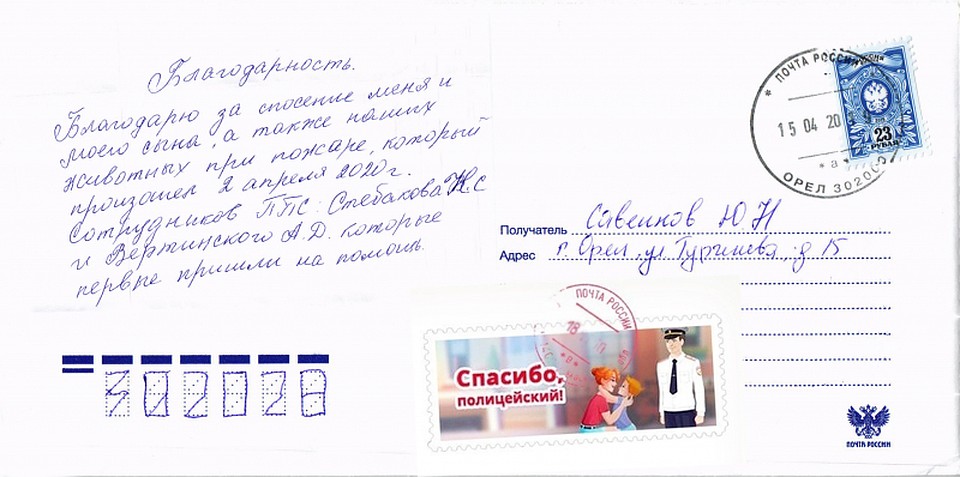 Благодарность.
Благодарю за спосение меня и
моего сына, а также наших
животных при пожаре, который
произошел 2 апреля 2020г.
Сотрудников ППС: Стебакова К.С
и Вертинского А.Д. которые
первые пришли на помощь.
ПОЧТА РОССИИ
15 04 20
*а*
ОРЕЛ 302000
23
РУБЛЯ
Получатель Савенков Ю Н
Адрес г. Орел, ул Тургенева д 15
ПОЧТА РОССИИ
18
*а*
Спасибо,
полицейский!
302028
ПОЧТА РОССИИ